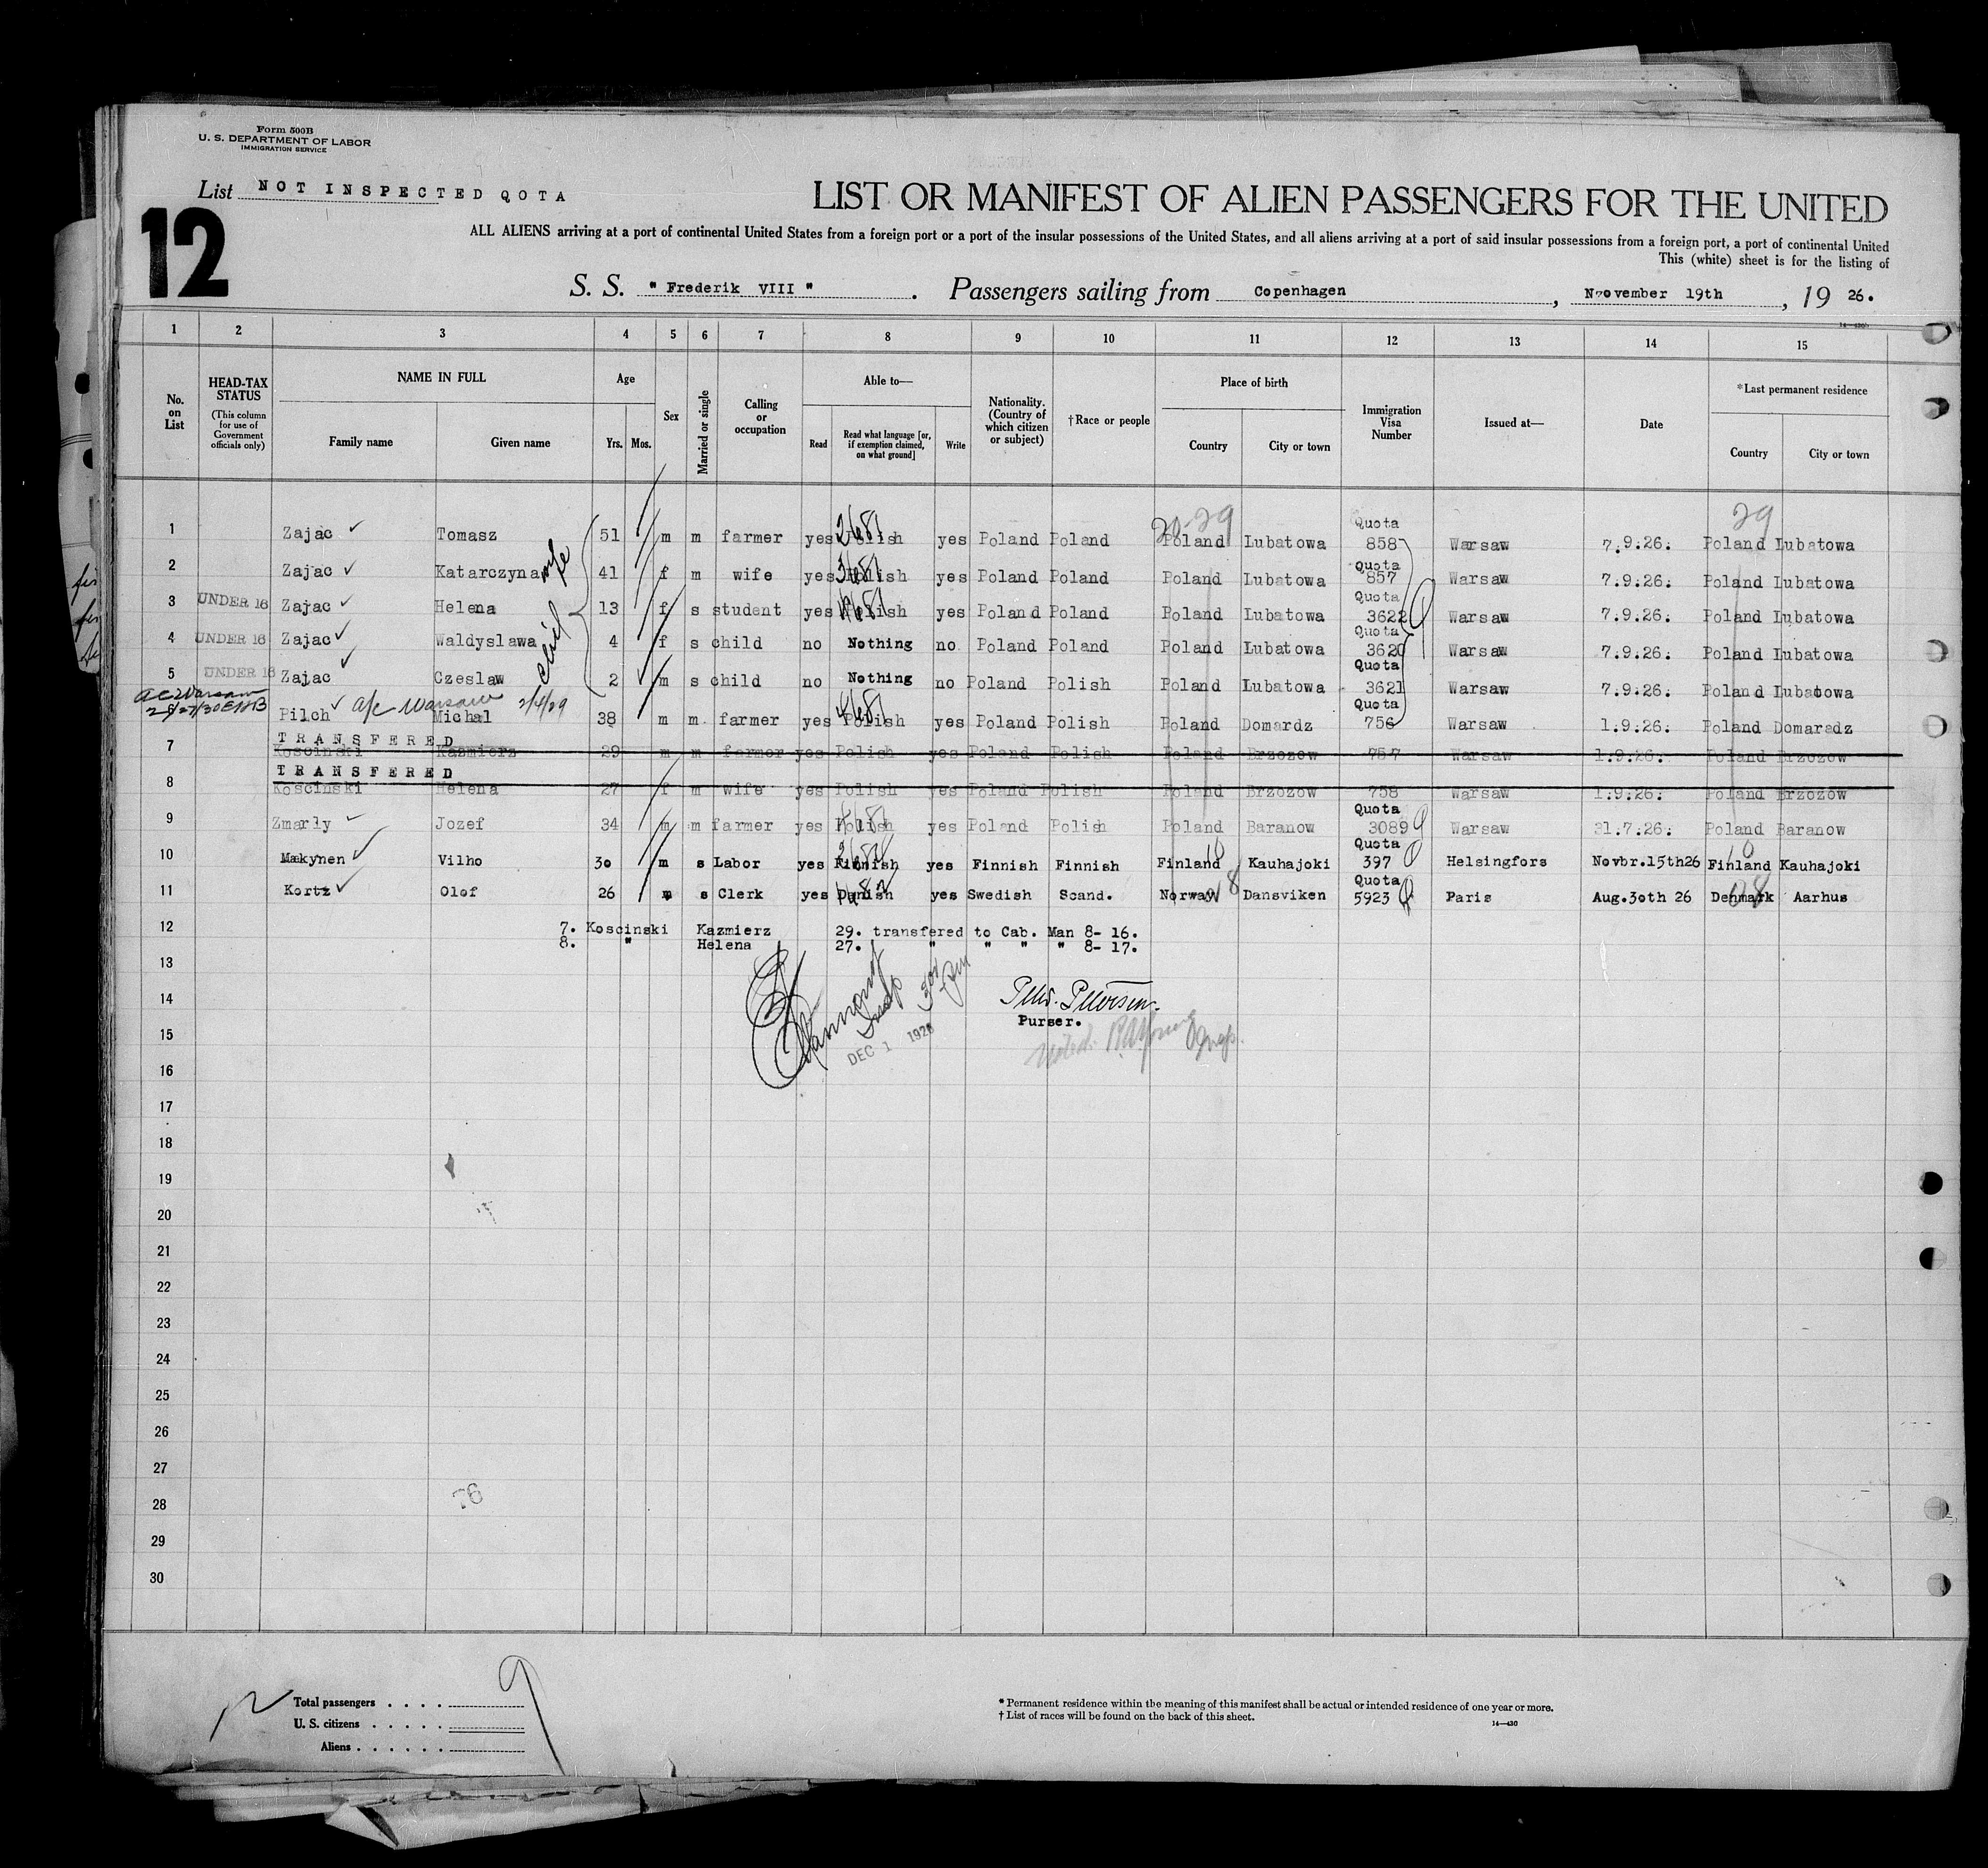 Form 500B
U. S. DEPARTMENT OF LABOR
IMMIGRATION SERVICE
List NOT INSPECTED QOTA
12
LIST OR MANIFEST OF ALIEN PASSENGERS FOR THE UNITED
ALL ALIENS arriving at a port of continental United States from a foreign port or a port of the insular possessions of the United States, and all aliens arriving at a port of said insular possessions from a foreign port, a port of continental United
This (white) sheet is for the listing of
S. S. " Frederik VIII " . Passengers sailing from Copenhagen , Nzovember 19th , 19 26.
14—430
1 2 3 4 5 6 7 8 9 10 11 12 13 14 15
No. on List
HEAD-TAX STATUS (This column for use of Government officials only)
NAME IN FULL
Family name Given name
Age
Yrs. Mos.
Sex
Married or single
Calling or occupation
Able to—
Read Read what language [or, if exemption claimed, on what ground] Write
Nationality. (Country of which citizen or subject)
†Race or people
Place of birth
Country City or town
Immigration Visa Number
Issued at—
Date
*Last permanent residence
Country City or town
20-29 29
1 Zajac Tomasz 51 m m farmer yes Polish yes Poland Poland Poland Lubatowa Quota 858 Warsaw 7.9.26. Poland Lubatowa
2 Zajac Katarczyna wife 41 f m wife yes Polish yes Poland Poland Poland Lubatowa Quota 857 Warsaw 7.9.26. Poland Lubatowa
3 UNDER 16 Zajac Helena 13 f s student yes Polish yes Poland Poland Poland Lubatowa Quota 3622 Warsaw 7.9.26. Poland Lubatowa
4 UNDER 16 Zajac Waldyslawa 4 f s child no Nothing no Poland Poland Poland Lubatowa Quota 3620 Warsaw 7.9.26. Poland Lubatowa
5 UNDER 16 Zajac Czeslaw 2 m s child no Nothing no Poland Polish Poland Lubatowa Quota 3621 Warsaw 7.9.26. Poland Lubatowa
a/c Warsaw 2/4/29
Pilch Michal 38 m m farmer yes Polish yes Poland Polish Poland Domardz Quota 756 Warsaw 1.9.26. Poland Domaradz
TRANSFERED
7 Koscinski Kazmierz 29 m m farmer yes Polish yes Poland Polish Poland Brzozow 757 Warsaw 1.9.26. Poland Brzozow
TRANSFERED
8 Koscinski Helena 27 f m wife yes Polish yes Poland Polish Poland Brzozow 758 Warsaw 1.9.26. Poland Brzozow
9 Zmarly Jozef 34 m m farmer yes Polish yes Poland Polish Poland Baranow Quota 3089 Warsaw 31.7.26. Poland Baranow
10 Mækynen Vilho 30 m s Labor yes Finnish yes Finnish Finnish Finland Kauhajoki Quota 397 Helsingfors Novbr.15th26 Finland Kauhajoki
11 Kortz Olof 26 m s Clerk yes Danish yes Swedish Scand. Norway Dansviken Quota 5923 Paris Aug.30th 26 Denmark Aarhus
12 7. Koscinski Kazmierz 29. transfered to Cab. Man 8- 16.
8. " Helena 27. " " " " 8- 17.
13
14
Purser.
15
DEC 1 1926
16
17
18
19
20
21
22
23
24
25
26
27
76
28
29
30
Total passengers . . . .
U. S. citizens . . . . .
Aliens . . . . . .
* Permanent residence within the meaning of this manifest shall be actual or intended residence of one year or more.
† List of races will be found on the back of this sheet.
14—430